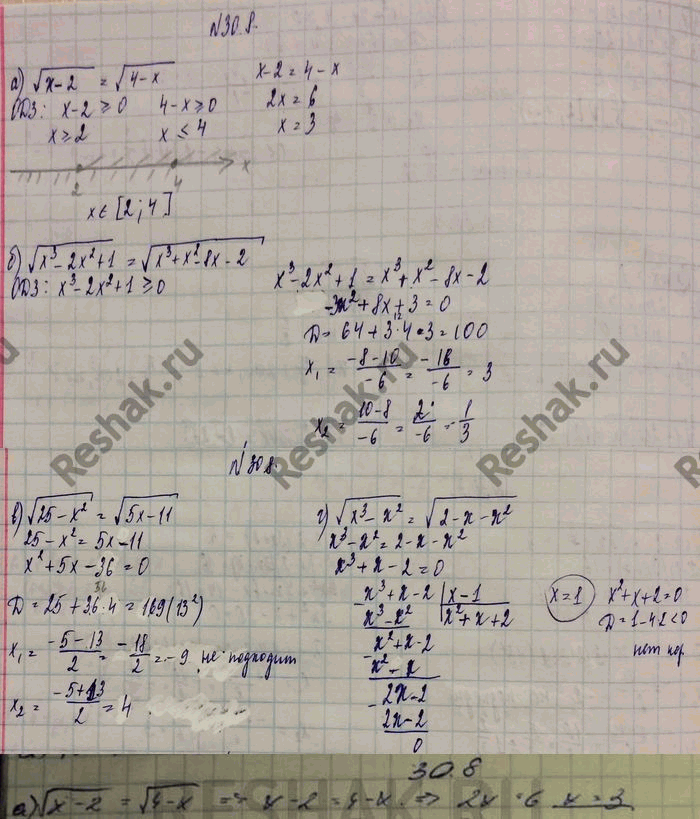 N 30.8.
а) √(x-2) = √(4-x)   x-2 = 4-x
ОДЗ: x-2 ≥ 0   4-x ≥ 0   2x = 6
x ≥ 2   x ≤ 4   x = 3
2   4   x
x ∈ [2; 4]
б) √(x³-2x²+1) = √(x³+x²-8x-2)
ОДЗ: x³-2x²+1 ≥ 0   x³-2x²+1 = x³+x²-8x-2
-3x²+8x+3 = 0
D = 64+3·4·3 = 100
12
x₁ = (-8-10)/(-6) = (-18)/(-6) = 3
x₂ = (10-8)/(-6) = 2/(-6) = -1/3
N 30.8.
в) √(25-x²) = √(5x-11)
25-x² = 5x-11
x²+5x-36 = 0
36
D = 25+36·4 = 169(13²)
x₁ = (-5-13)/2 = -18/2 = -9 не подходит
x₂ = (-5+13)/2 = 4
г) √(x³-x²) = √(2-x-x²)
x³-x² = 2-x-x²
x³+x-2 = 0
x³+x-2 | x-1
x³-x² | x²+x+2
x²+x-2
x²-x
2x-2
2x-2
0
x = 1   x²+x+2 = 0
D = 1-4·2<0
нет кор
30.8
а) √(x-2) = √(4-x) => x-2 = 4-x => 2x = 6 x = 3
Reshak.ru
Reshak.ru
Reshak.ru
RESHAK.RU